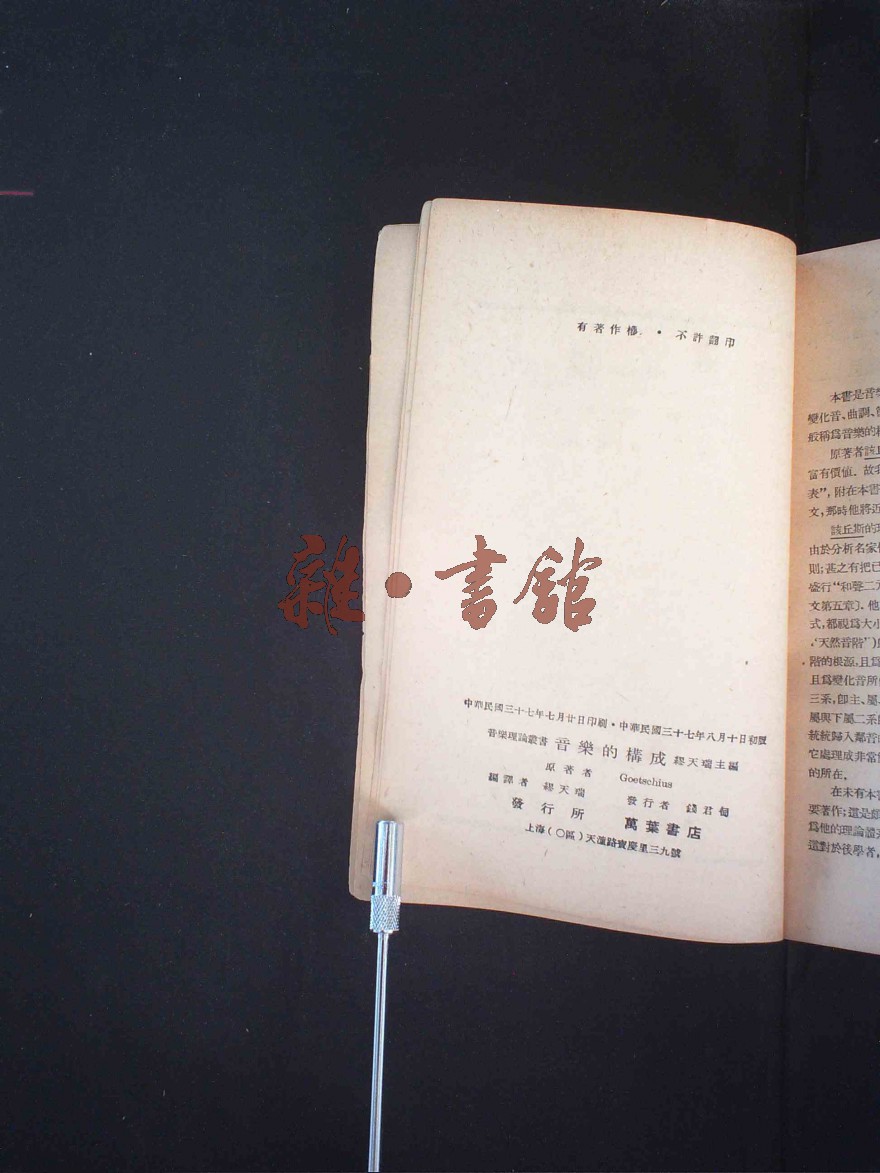 有著作權 · 不許翻印
雜·書館
中華民國三十七年七月廿日印刷·中華民國三十七年八月十日初版
音樂理論叢書 音樂的構成 繆天瑞主編
原著者 Goetschius
編譯者 繆天瑞 發行者 錢君匋
發行所 萬葉書店
上海(〇區)天潼路寶慶里三九號
本書是音樂
變化音、曲調、
般稱爲音樂的
原著者該丘
富有價値．故我
表”，附在本書
文，那時他將近
該丘斯的理
由於分析名家
則；甚之有把已
盛行“和聲二元
文第五章）．他
式，都視爲大小
‘天然音階’）
階的根源，且爲
且爲變化音所
三系，卽主、屬、
屬與下屬二系
統統歸入鄰音
它處理成非常
的所在．
在未有本書
要著作；這是
爲他的理論體系
這對於後學者，